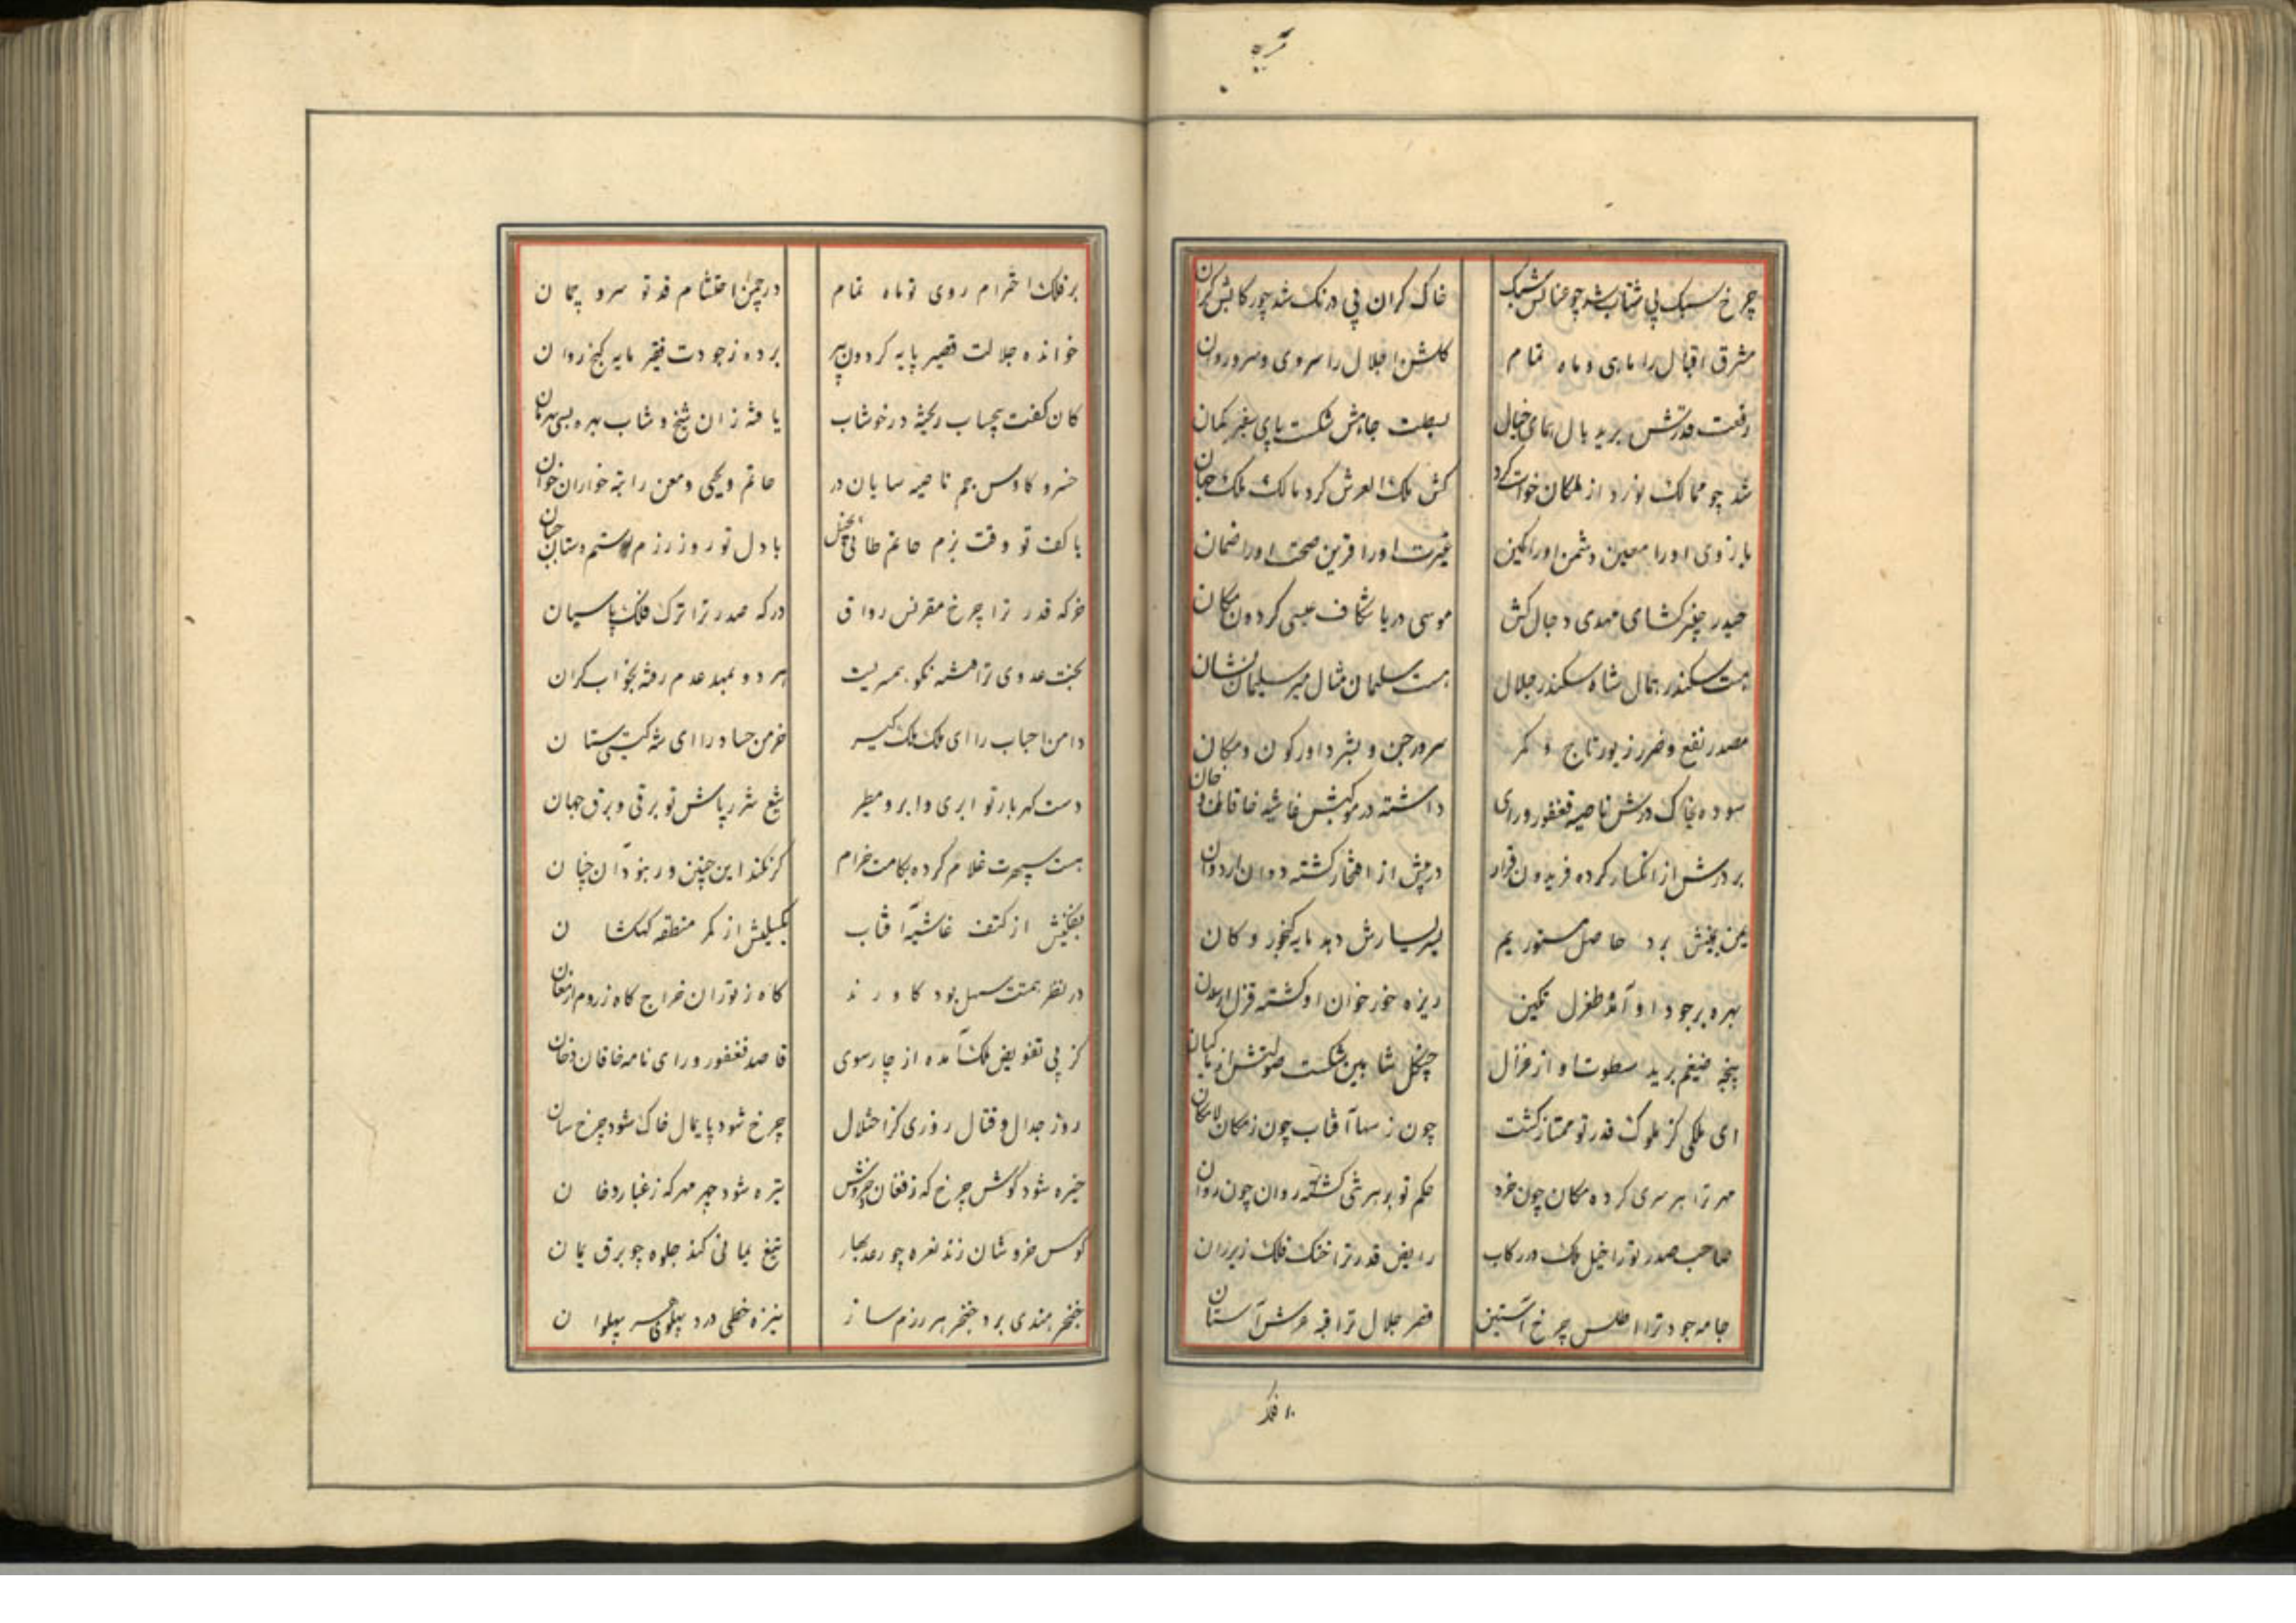 چرخ سبک پی شتاب شد چو عنانش سبک
خاک کران پی درنک شد چو رکابش کران
مشرق اقبال را ماهی و ماه تمام
کلشن اجلال را سروی و سرو روان
رفعت قدرش برید بال همای خیال
سجلت جاهش شکست پای سفیر کمان
شد چو ممالک نورد از ملکان خواست کرد
کش ملک العرش کرد مالک ملک جهان
بازوی او را معین دشمن او را کمین
عزت او را قرین صحت او را ضمان
حیدر خیبر کشای مهدی دجال کش
موسی دریا شکاف عیسی کردون مکان
هست سکندر همال شاه سکندر جلال
هست سلیمان مثال میر سلیمان نشان
مصدر نفع و ضرر زیور تاج و کمر
سرور جن و بشر داور کون و مکان
سوده بخاک درش ناصیه فغفور و رای
داشته در موکبش غاشیه خاقان و خان
بر درش از انکسار کرده فریدون قرار
در پیش از افتخار کشته دوان اردوان
یمن یمینش برد حاصل مستور یم
یسر یسارش دهد مایه کنجور و کان
بهره بر جود او آمده طغرل نکین
ریزه خور خوان او کشته قزل ارسلان
پنجه ضیغم برید سطوت او از غزال
چنکل شاهین شکست صولتش از ماکیان
ای ملکی کز ملوک قدر تو ممتاز کشت
چون ز سها آفتاب چون ز مکان لامکان
مهر ترا بر سری کرده مکان چون خرد
حکم تو بر هر شی کشته روان چون روان
صاحب صدر تو را خیل ملک در رکاب
رایض قدر ترا خنک فلک زیر ران
جامه جود ترا اطلس چرخ آستین
قصر جلال ترا قبه عرش آستان
بر فلک
بر فلک احترام روی تو ماه تمام
در چمن احتشام قد تو سرو چمان
خوانده جلالت قصیر پایه کردون پیر
برده ز جودت فقیر مایه کنج روان
کان کفت بیحساب ریخته در خوشاب
یافته زان شیخ و شاب بهره بسی بهرمان
خسرو کاوس جم ناصیه سایان در
حاتم و یحیی و معن راتبه خواران خوان
با کف تو وقت بزم حاتم طائی بخیل
با دل تو روز رزم رستم دستان جبان
خرکه قدر ترا چرخ مقرنس رواق
درکه صدر ترا ترک فلک پاسبان
بخت عدوی ترا فتنه نکو همسریست
هر دو بمهد عدم رفته بخواب کران
دامن احباب را ای ملک ملک کیر
خرمن حساد را ای شه کیتی ستان
دست کهر بار تو ابری و ابر و مطیر
تیغ شرر پاش تو برقی و برق جهان
هست سپهرت غلام کرده بکامت خرام
کر نکند این چنین ور نبود آن چنان
بفکنیش از کتف غاشیه آفتاب
بکسلیش از کمر منطقه کهکشان
در نظر همتت سهل بود کاورند
کاه ز توران خراج کاه ز روم ارمغان
کز پی تفویض ملک آمده از چار سوی
قاصد فغفور و رای نامه خاقان و خان
روز جدال و قتال روزی کز اختلال
چرخ شود پایمال خاک شود چرخ سان
خیره شود کوش چرخ که ز فغان خروش
تیره شود چهر مهر که ز غبار دخان
کوس خروشان زند نعره چو رعد بهار
تیغ یمانی کند جلوه چو برق یمان
خنجر هندی برد حنجر هر رزم ساز
نیزه خطی درد پهلوی هر پهلوان